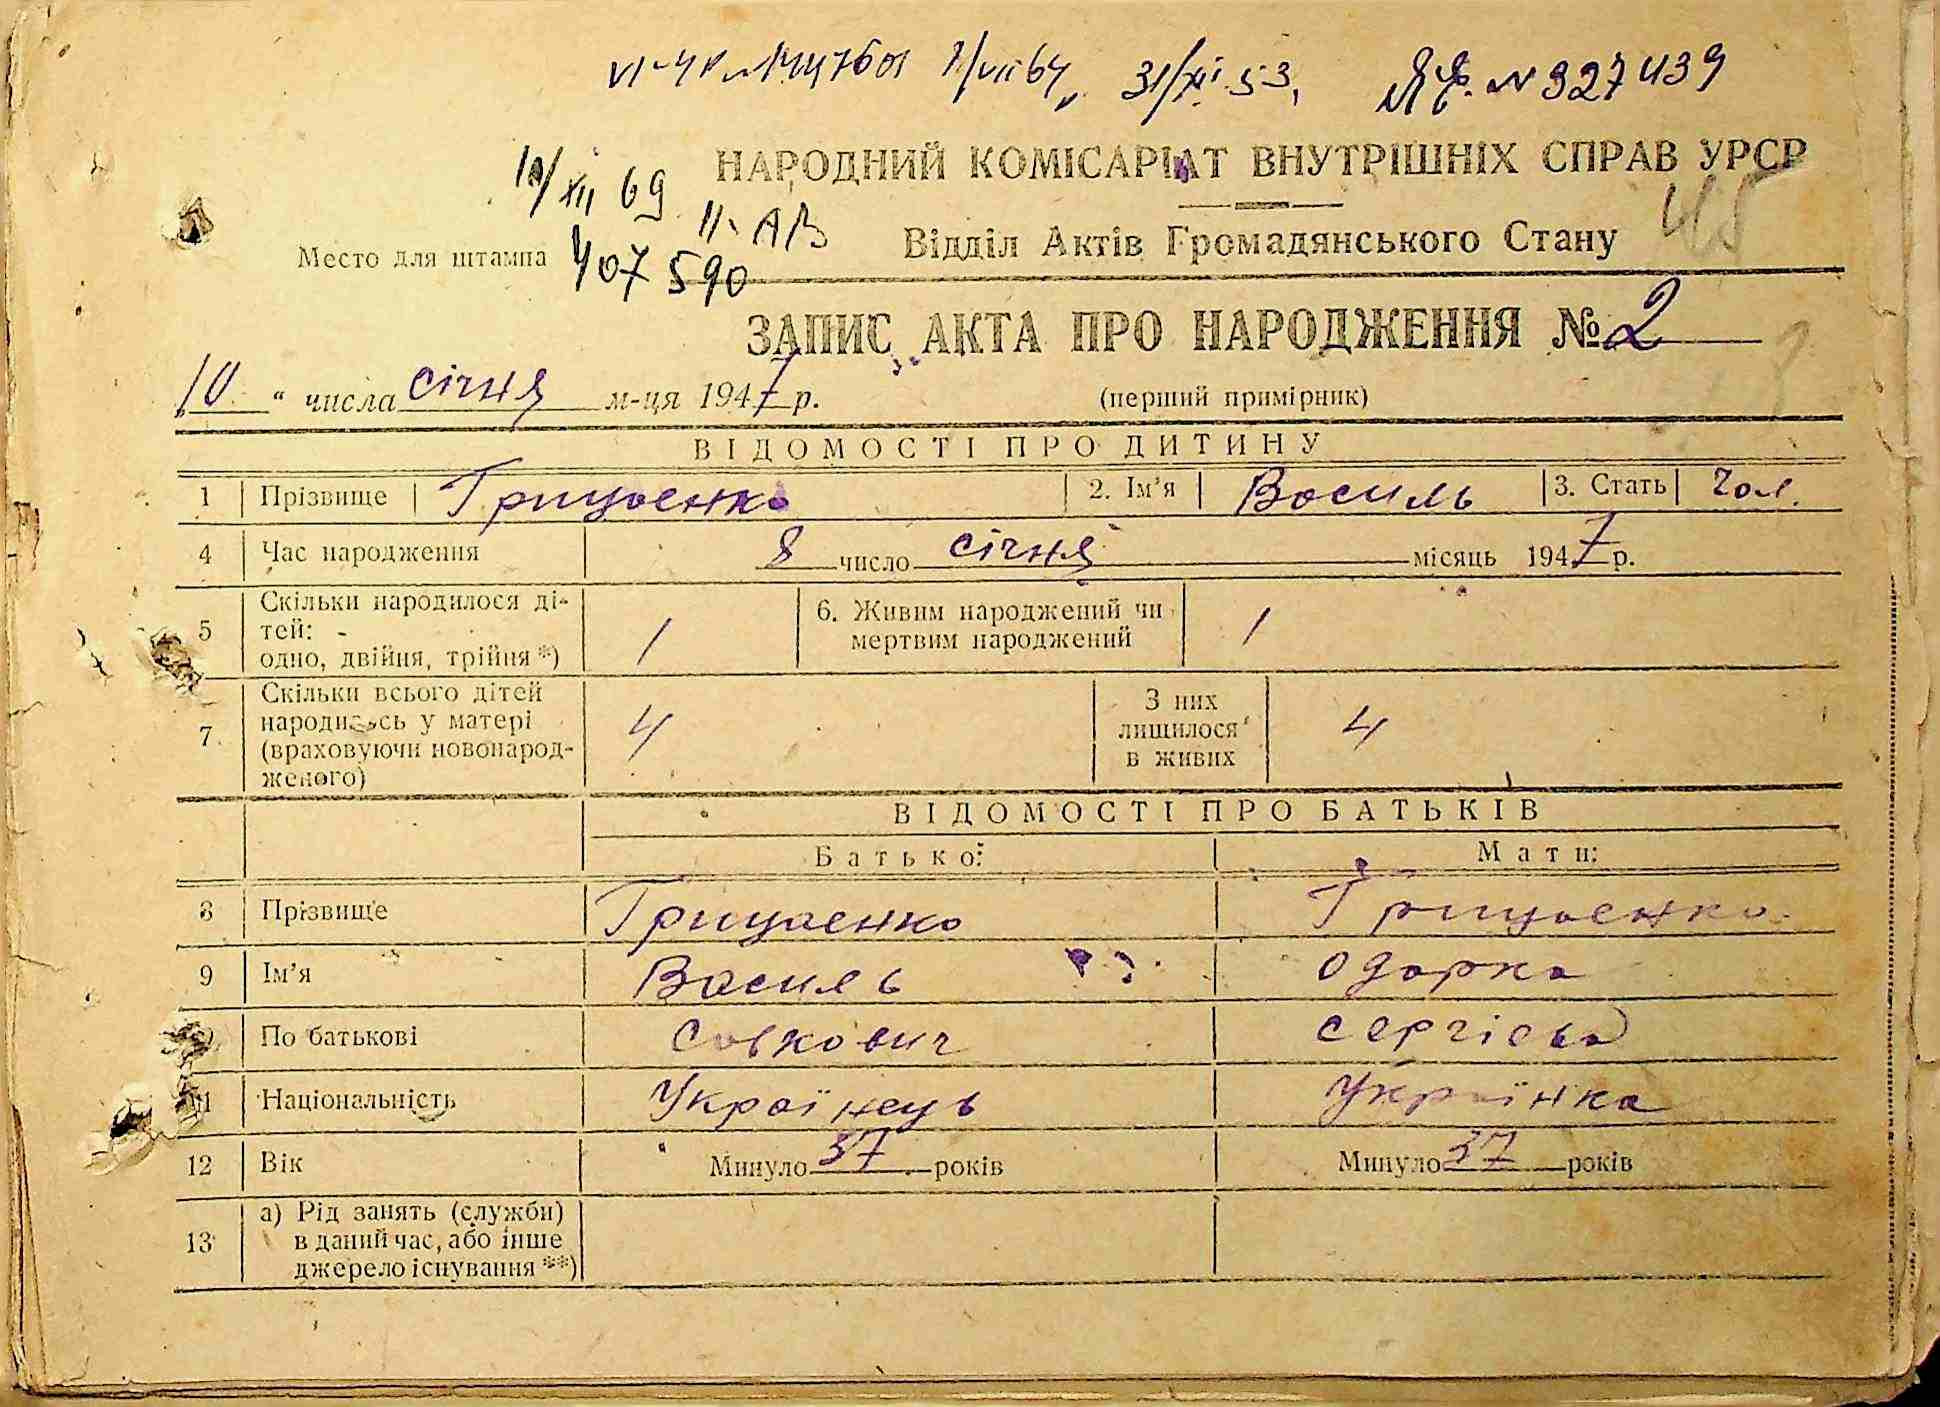 1/VII 64 31/XI 53, ЯЦ. N 327439
НАРОДНИЙ КОМІСАРІАТ ВНУТРІШНІХ СПРАВ УРСР
10/XII 69 II-АВ
45
Место для штампа 407590 Відділ Актів Громадянського Стану
ЗАПИС АКТА ПРО НАРОДЖЕННЯ № 2
„10 “ числа січня м-ця 1947 р. (перший примірник)
ВІДОМОСТІ ПРО ДИТИНУ
1 Прізвище Грицаенко 2. Ім’я Василь 3. Стать Чол.
4 Час народження 8 число січня місяць 1947 р.
5 Скільки народилося ді-
тей:
одно, двійня, трійня *) 1 6. Живим народжений чи
мертвим народжений 1
7 Скільки всього дітей
народилось у матері
(враховуючи новонарод-
женого) 4 З них
лишилося
в живих 4
ВІДОМОСТІ ПРО БАТЬКІВ
Батько: Мати:
8 Прізвище Грицаенко Грицаенко
9 Ім’я Василь Одарка
10 По батькові Савкович Сергієва
11 Національність Українець Українка
12 Вік Минуло 37 років Минуло 37 років
13 а) Рід занять (служби)
в даний час, або інше
джерело існування **)